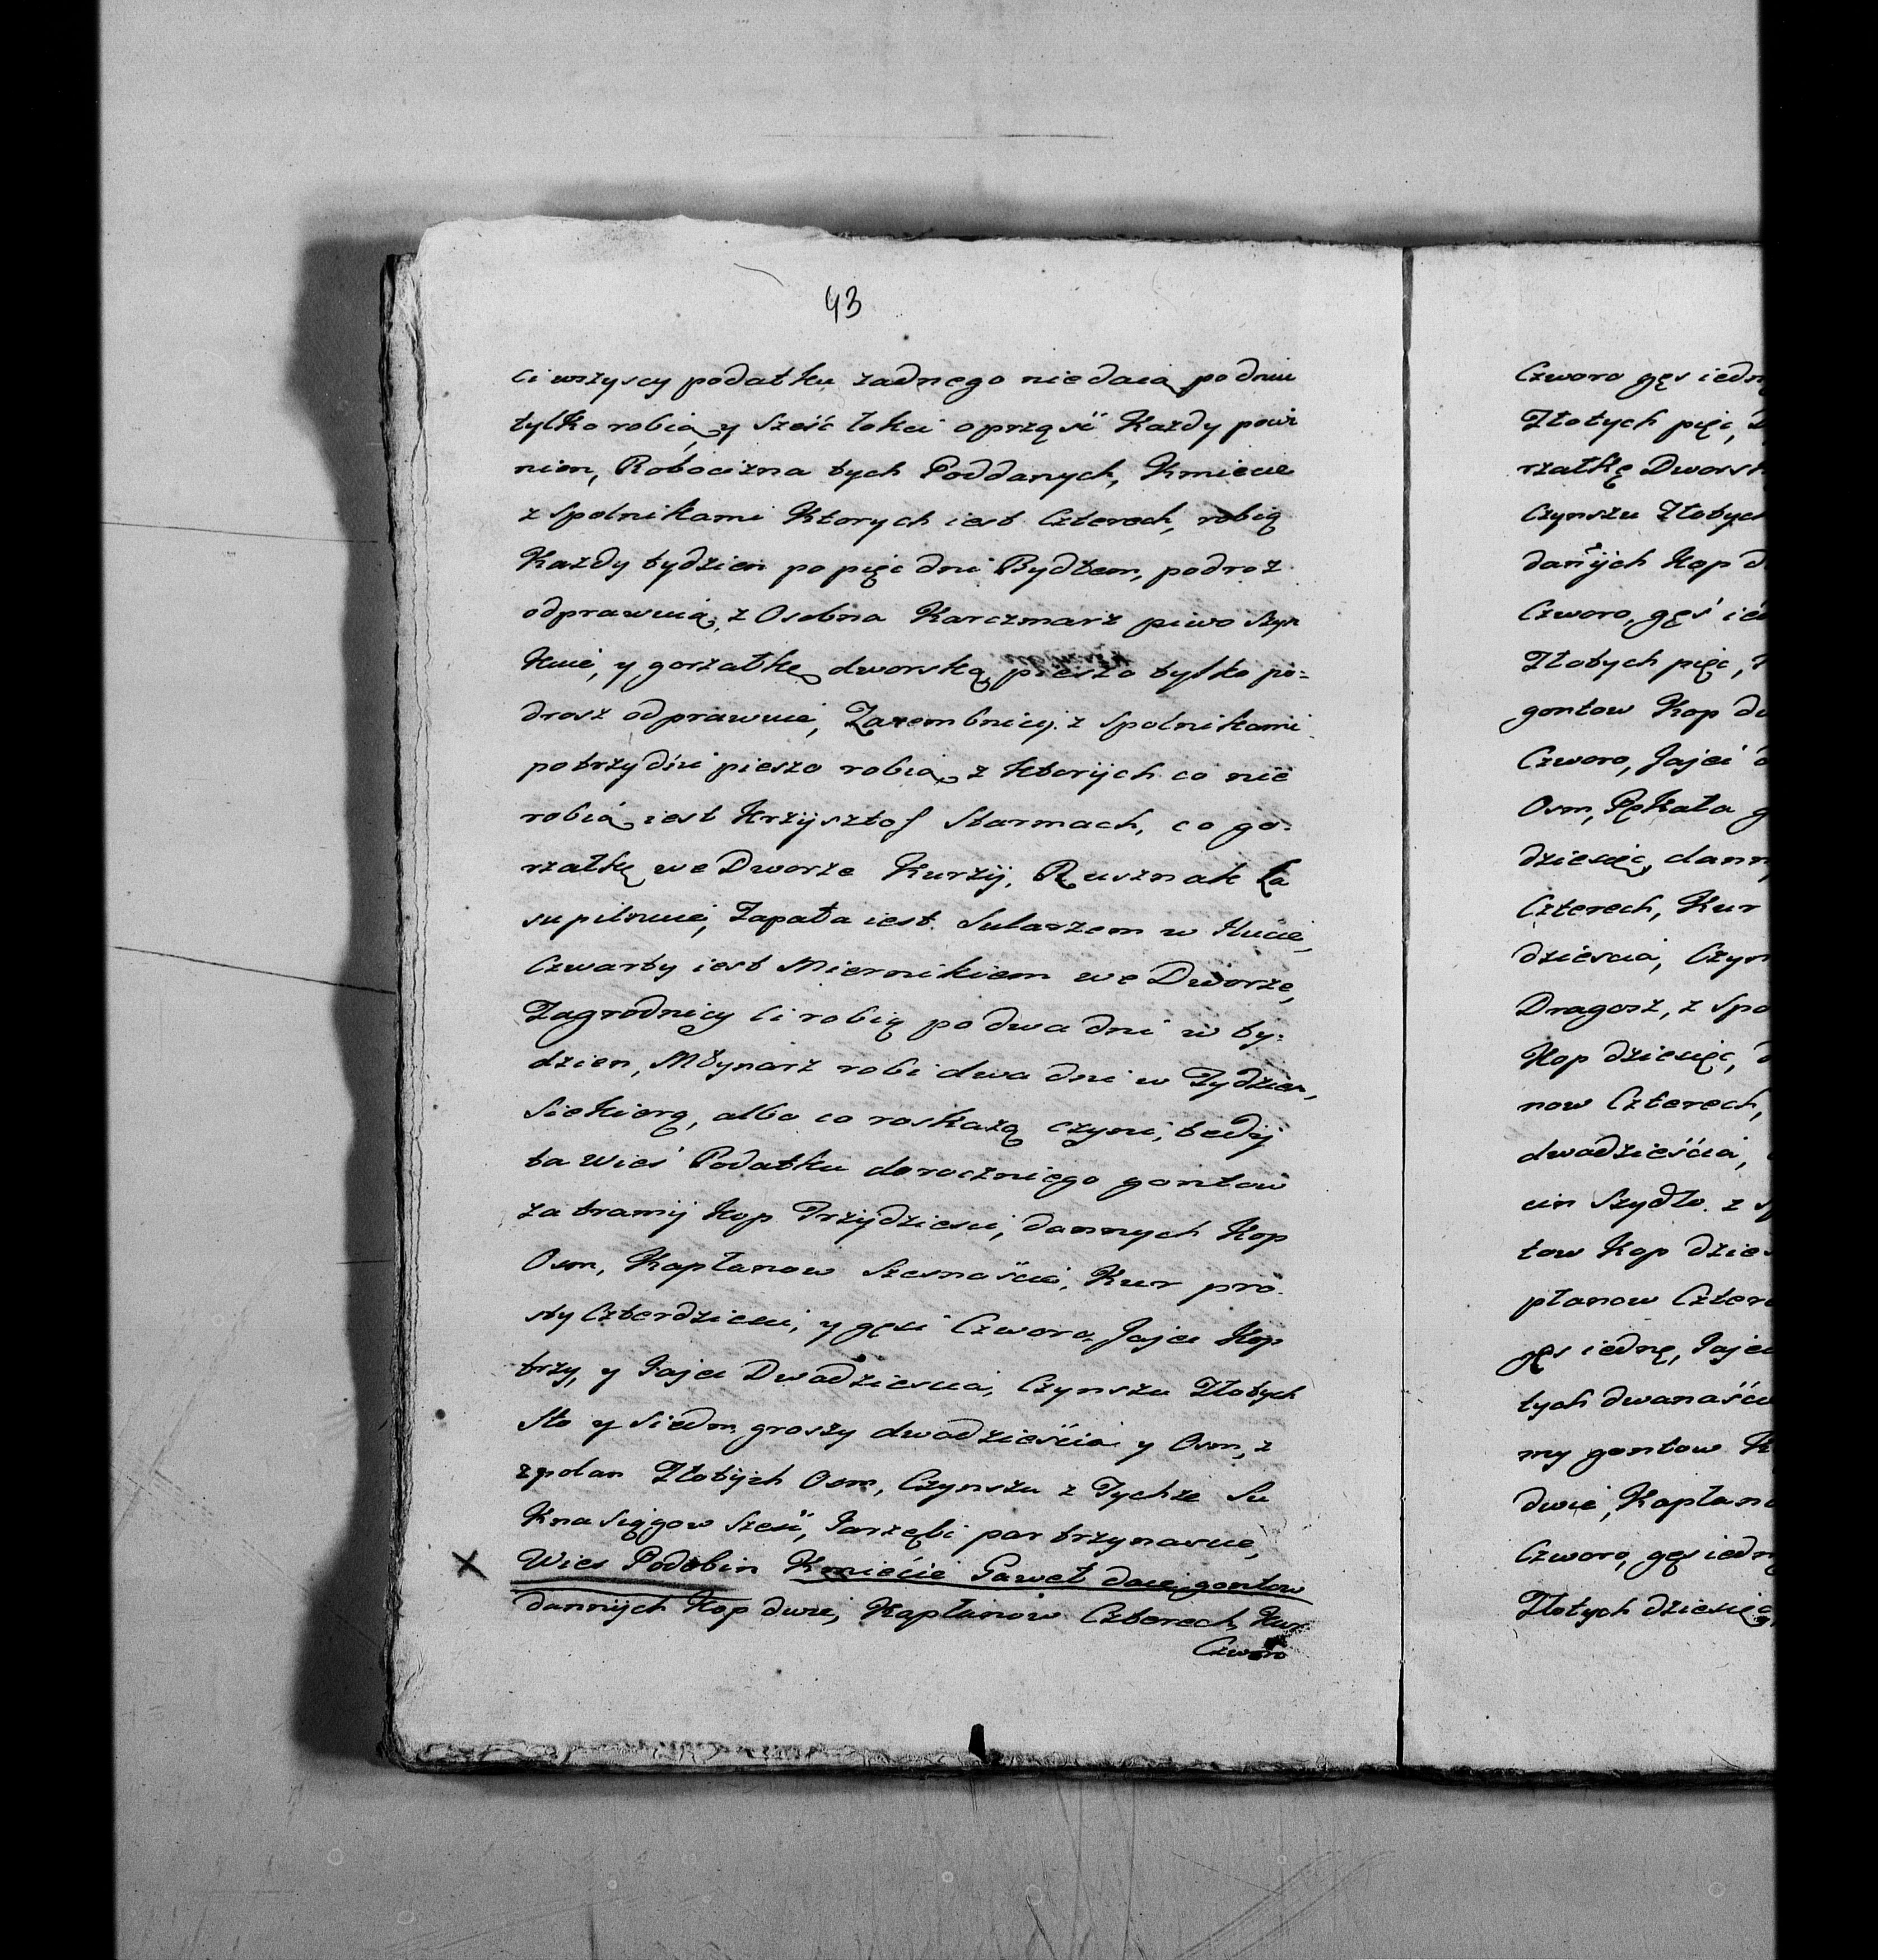 43
ci wszyscy podatku żadnego niedaią po dniu
tylko robią, y sześć łokci oprząść Każdy powi
nien, Robocizna tych Poddanych, Kmiecie
z spolnikami Ktorych iest Czterech, robią
Każdy tydzien po pięc dni Bydłem, podroż
odprawuią, z Osobna Karczmarz piwo szyn
kuie, y gorzałkę dworską, pieszo tylko po=
drosz odprawuie, Zarembnicy z spolnikami
po trzy dni pieszo robią, z ktorych co nie
robią iest Krzysztof Starmach, co go=
rzałkę we Dworze Kurzy, Rusznak La
su pilnuie, Zapała iest Sularzem w Hucie,
Czwarty iest Miernikiem we Dworze,
Zagrodnicy ci robią po dwa dni w ty=
dzien, Młynarz robi dwa dni w Tydzien,
Siekierą, albo co roskażą czyni, tedy
ta Wieś Podatku doroczniego gontow
za tramy Kop Trzydziesci, dannych Kop
Osm, Kapłanow Szesnaście, Kur pro
sty Czterdziesci, y gęsi Czworo, Jajec Kop
trzy, y Jajec Dwadziescia, Czynszu Złotych
Sto y Siedm, groszy dwadzieścia y Osm, z
zpolan Złotych Osm, Czynszu z Tychze Su
kna siągow sześć, Jarzębi par trzynascie,
Wies Podobin Kmiećie Paweł daie gontow
dannych Kop dwie, Kapłanow Czterech, Kur
Czworo
Czworo gęs iedn
Złotych pięc,
rzałkę Dworsk
Czynszu Złotych
danych Kop d
Czworo, gęś ied
Złotych pięc,
gontow Kop dw
Czworo, Jajec d
Osm, Pękała g
dziesięc, dann
Czterech, Kur
dziescia, Czyn
Dragosz, z spo
Kop dziesięc, d
now Czterech,
dwadzieścia,
cin Szydło z s
tow Kop dzies
płanow Czter
gęs iednę, Jajec
tych dwanaście
my gontow K
dwie, Kapłan
Czworo, gęs iedn
Złotych dziesięc,